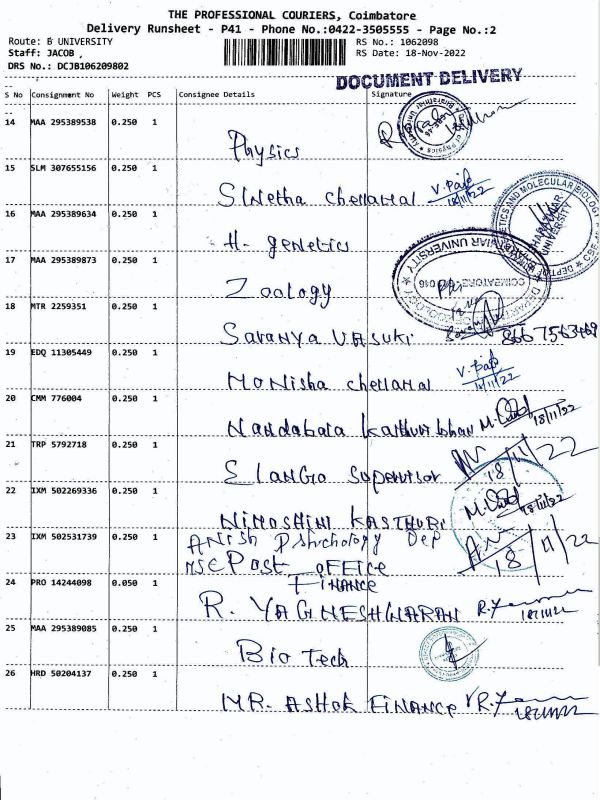 THE PROFESSIONAL COURIERS, Coimbatore
Delivery Runsheet - P41 - Phone No.:0422-3505555 - Page No.:2
Route: B UNIVERSITY RS No.: 1062098
Staff: JACOB , RS Date: 18-Nov-2022
DRS No.: DCJB106209802
DOCUMENT DELIVERY
S No Consignment No Weight PCS Consignee Details Signature
14 MAA 295389538 0.250 1
Physics
15 SLM 307655156 0.250 1
Swetha chellamal V. 18/11/22
16 MAA 295389634 0.250 1
H. genetics
17 MAA 295389873 0.250 1
Zoology
18 MTR 2259351 0.250 1
Saranya Vasuki 8667563469
19 EDQ 11305449 0.250 1
Monisha chellamal V. 18/11/22
20 CMM 776004 0.250 1
Nandabala Kasthuri bhan M. 18/11/22
21 TRP 5792718 0.250 1
Elango Supervisor 18/11/22
22 IXM 502269336 0.250 1
Niroshini KASTHURI M. 18/11/22
23 IXM 502531739 0.250 1
Anish Pshrchology Dep 18/11/22
MSC Post office
24 PRO 14244098 0.050 1
Finance
R. YAGNESHWARAN R. 18/11/22
25 MAA 295389085 0.250 1
Bio Tech
26 HRD 50204137 0.250 1
MR. ASHOK FINANCE R. 18/11/22